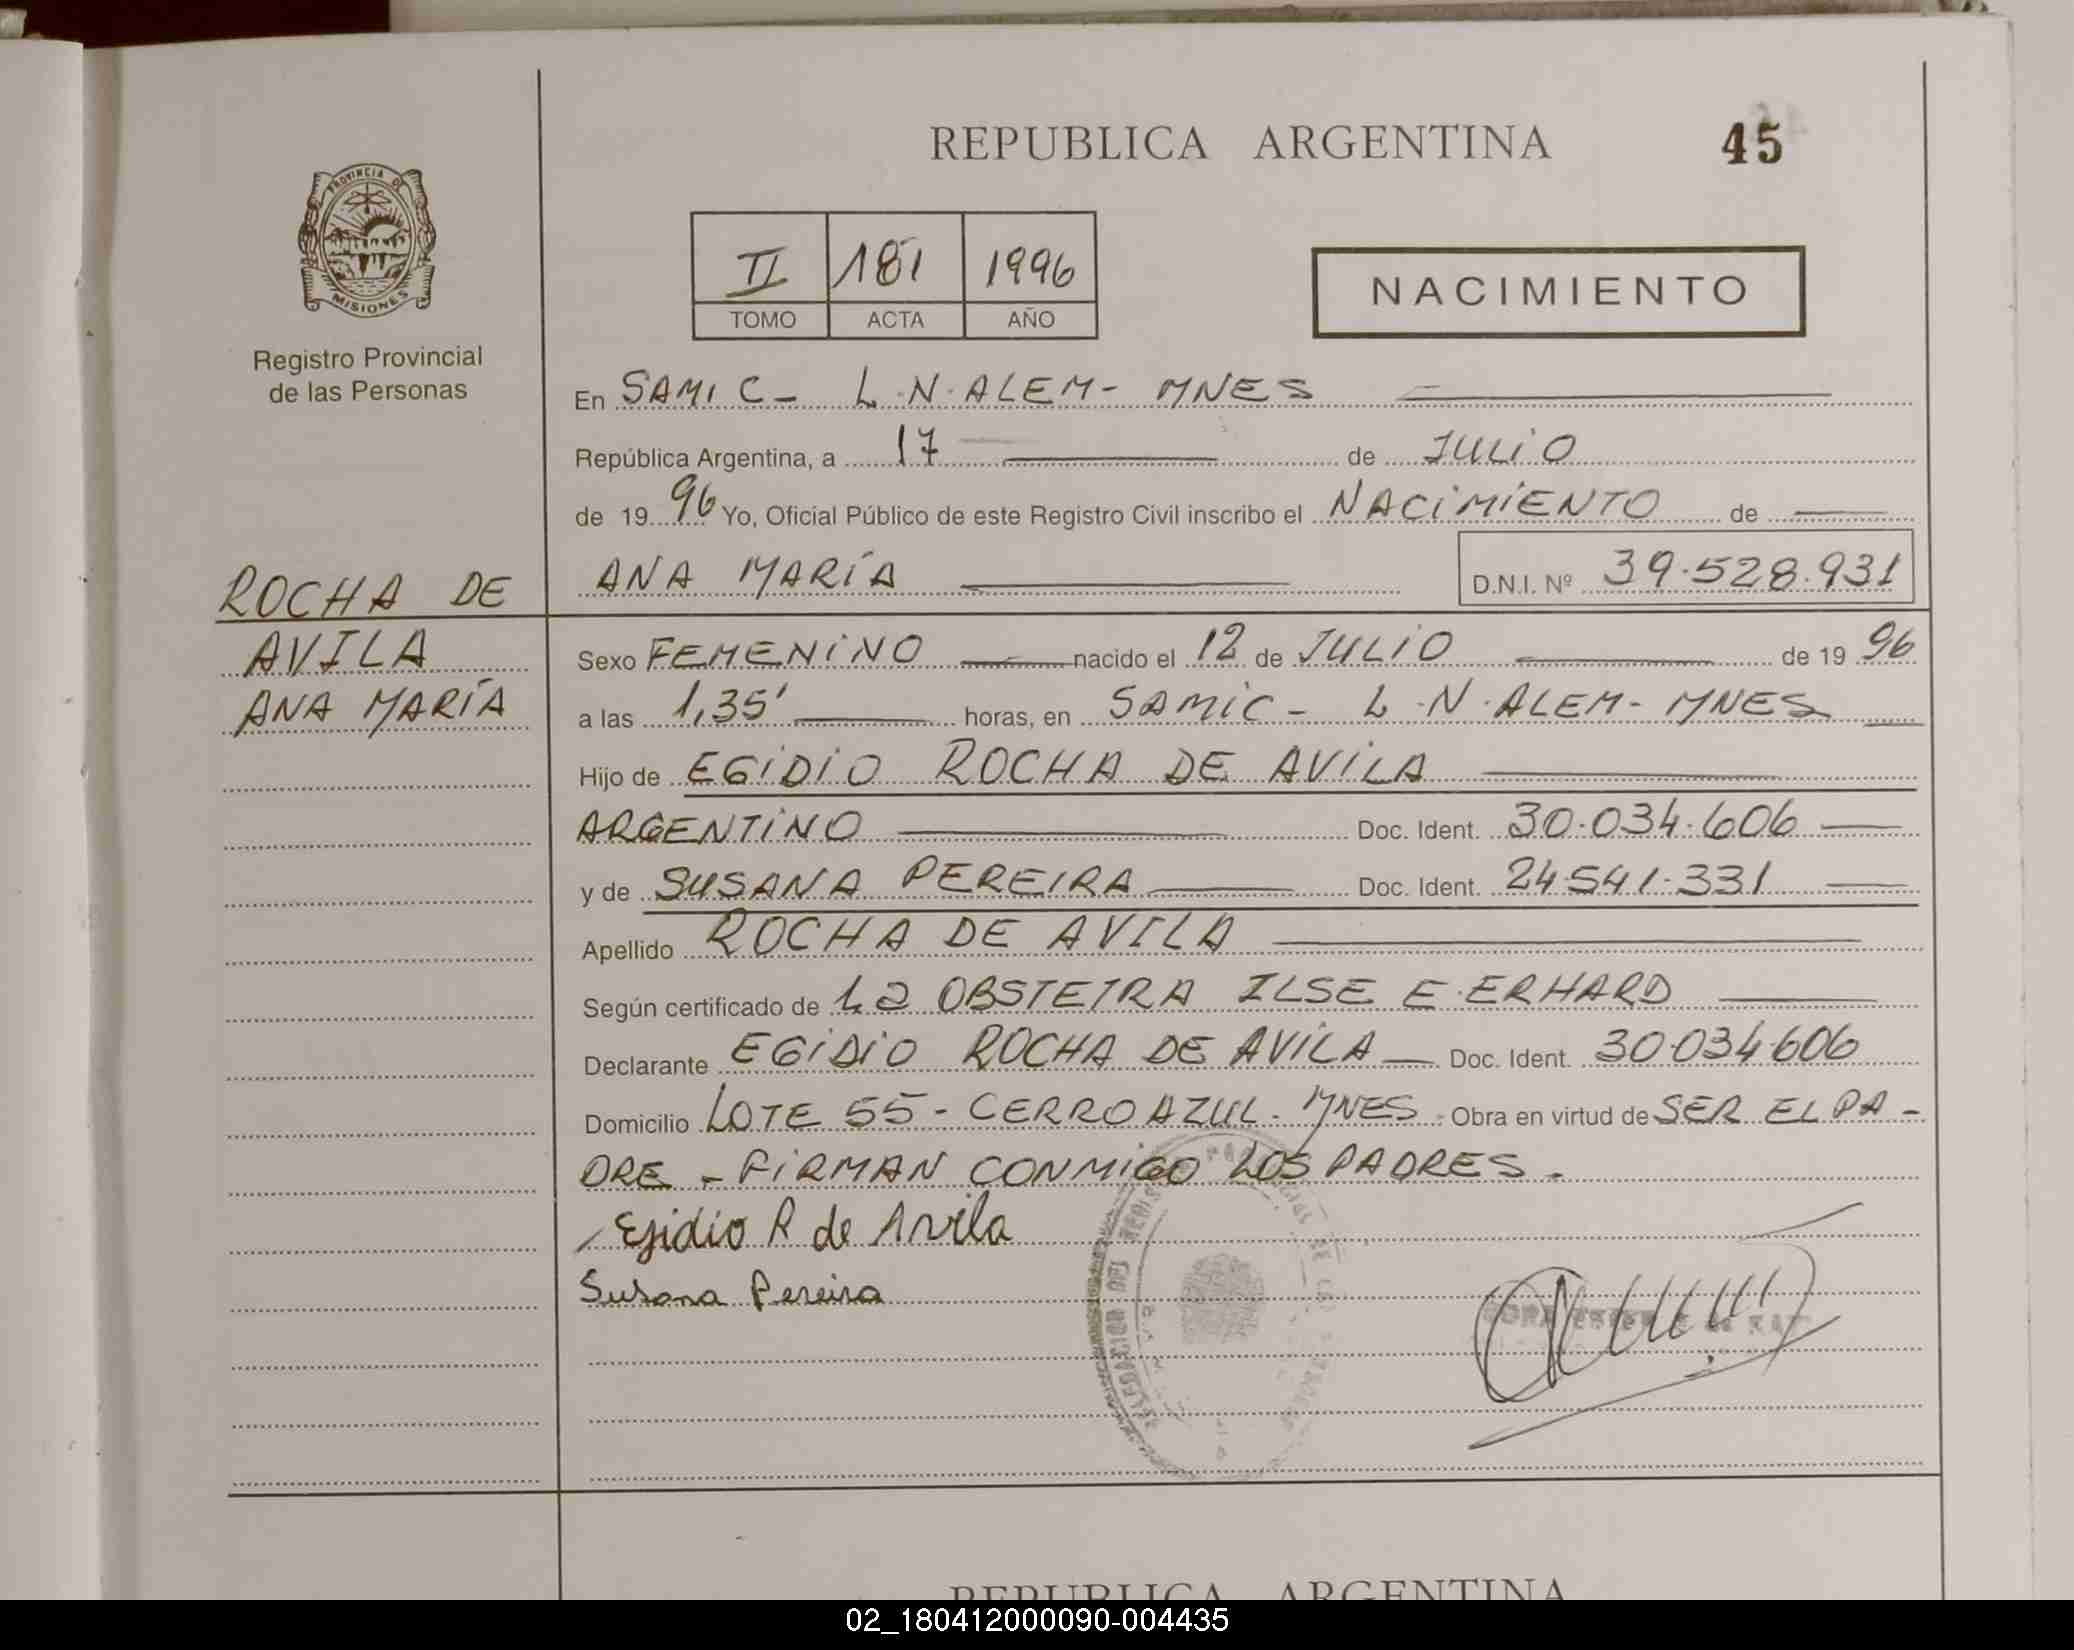 REPUBLICA ARGENTINA
45
PROVINCIA DE
MISIONES
Registro Provincial
de las Personas
II 181 1996
TOMO ACTA AÑO
NACIMIENTO
En SAMIC - L.N. ALEM - MNES
República Argentina, a 17 de JULIO
de 1996 Yo, Oficial Público de este Registro Civil inscribo el NACIMIENTO de
ANA MARÍA D.N.I. Nº 39.528.931
ROCHA DE
AVILA
ANA MARÍA
Sexo FEMENINO nacido el 12 de JULIO de 1996
a las 1,35' horas, en SAMIC - L.N. ALEM - MNES
Hijo de EGIDIO ROCHA DE AVILA
ARGENTINO Doc. Ident. 30.034.606
y de SUSANA PEREIRA Doc. Ident. 24.541.331
Apellido ROCHA DE AVILA
Según certificado de La OBSTETRA ILSE E. ERHARD
Declarante EGIDIO ROCHA DE AVILA Doc. Ident. 30.034.606
Domicilio LOTE 55 - CERRO AZUL - MNES Obra en virtud de SER EL PA-
DRE - FIRMAN CONMIGO LOS PADRES.
Egidio R de Avila
Susana Pereira
REPUBLICA ARGENTINA
02_180412000090-004435